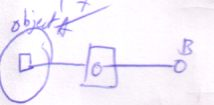 object A
B